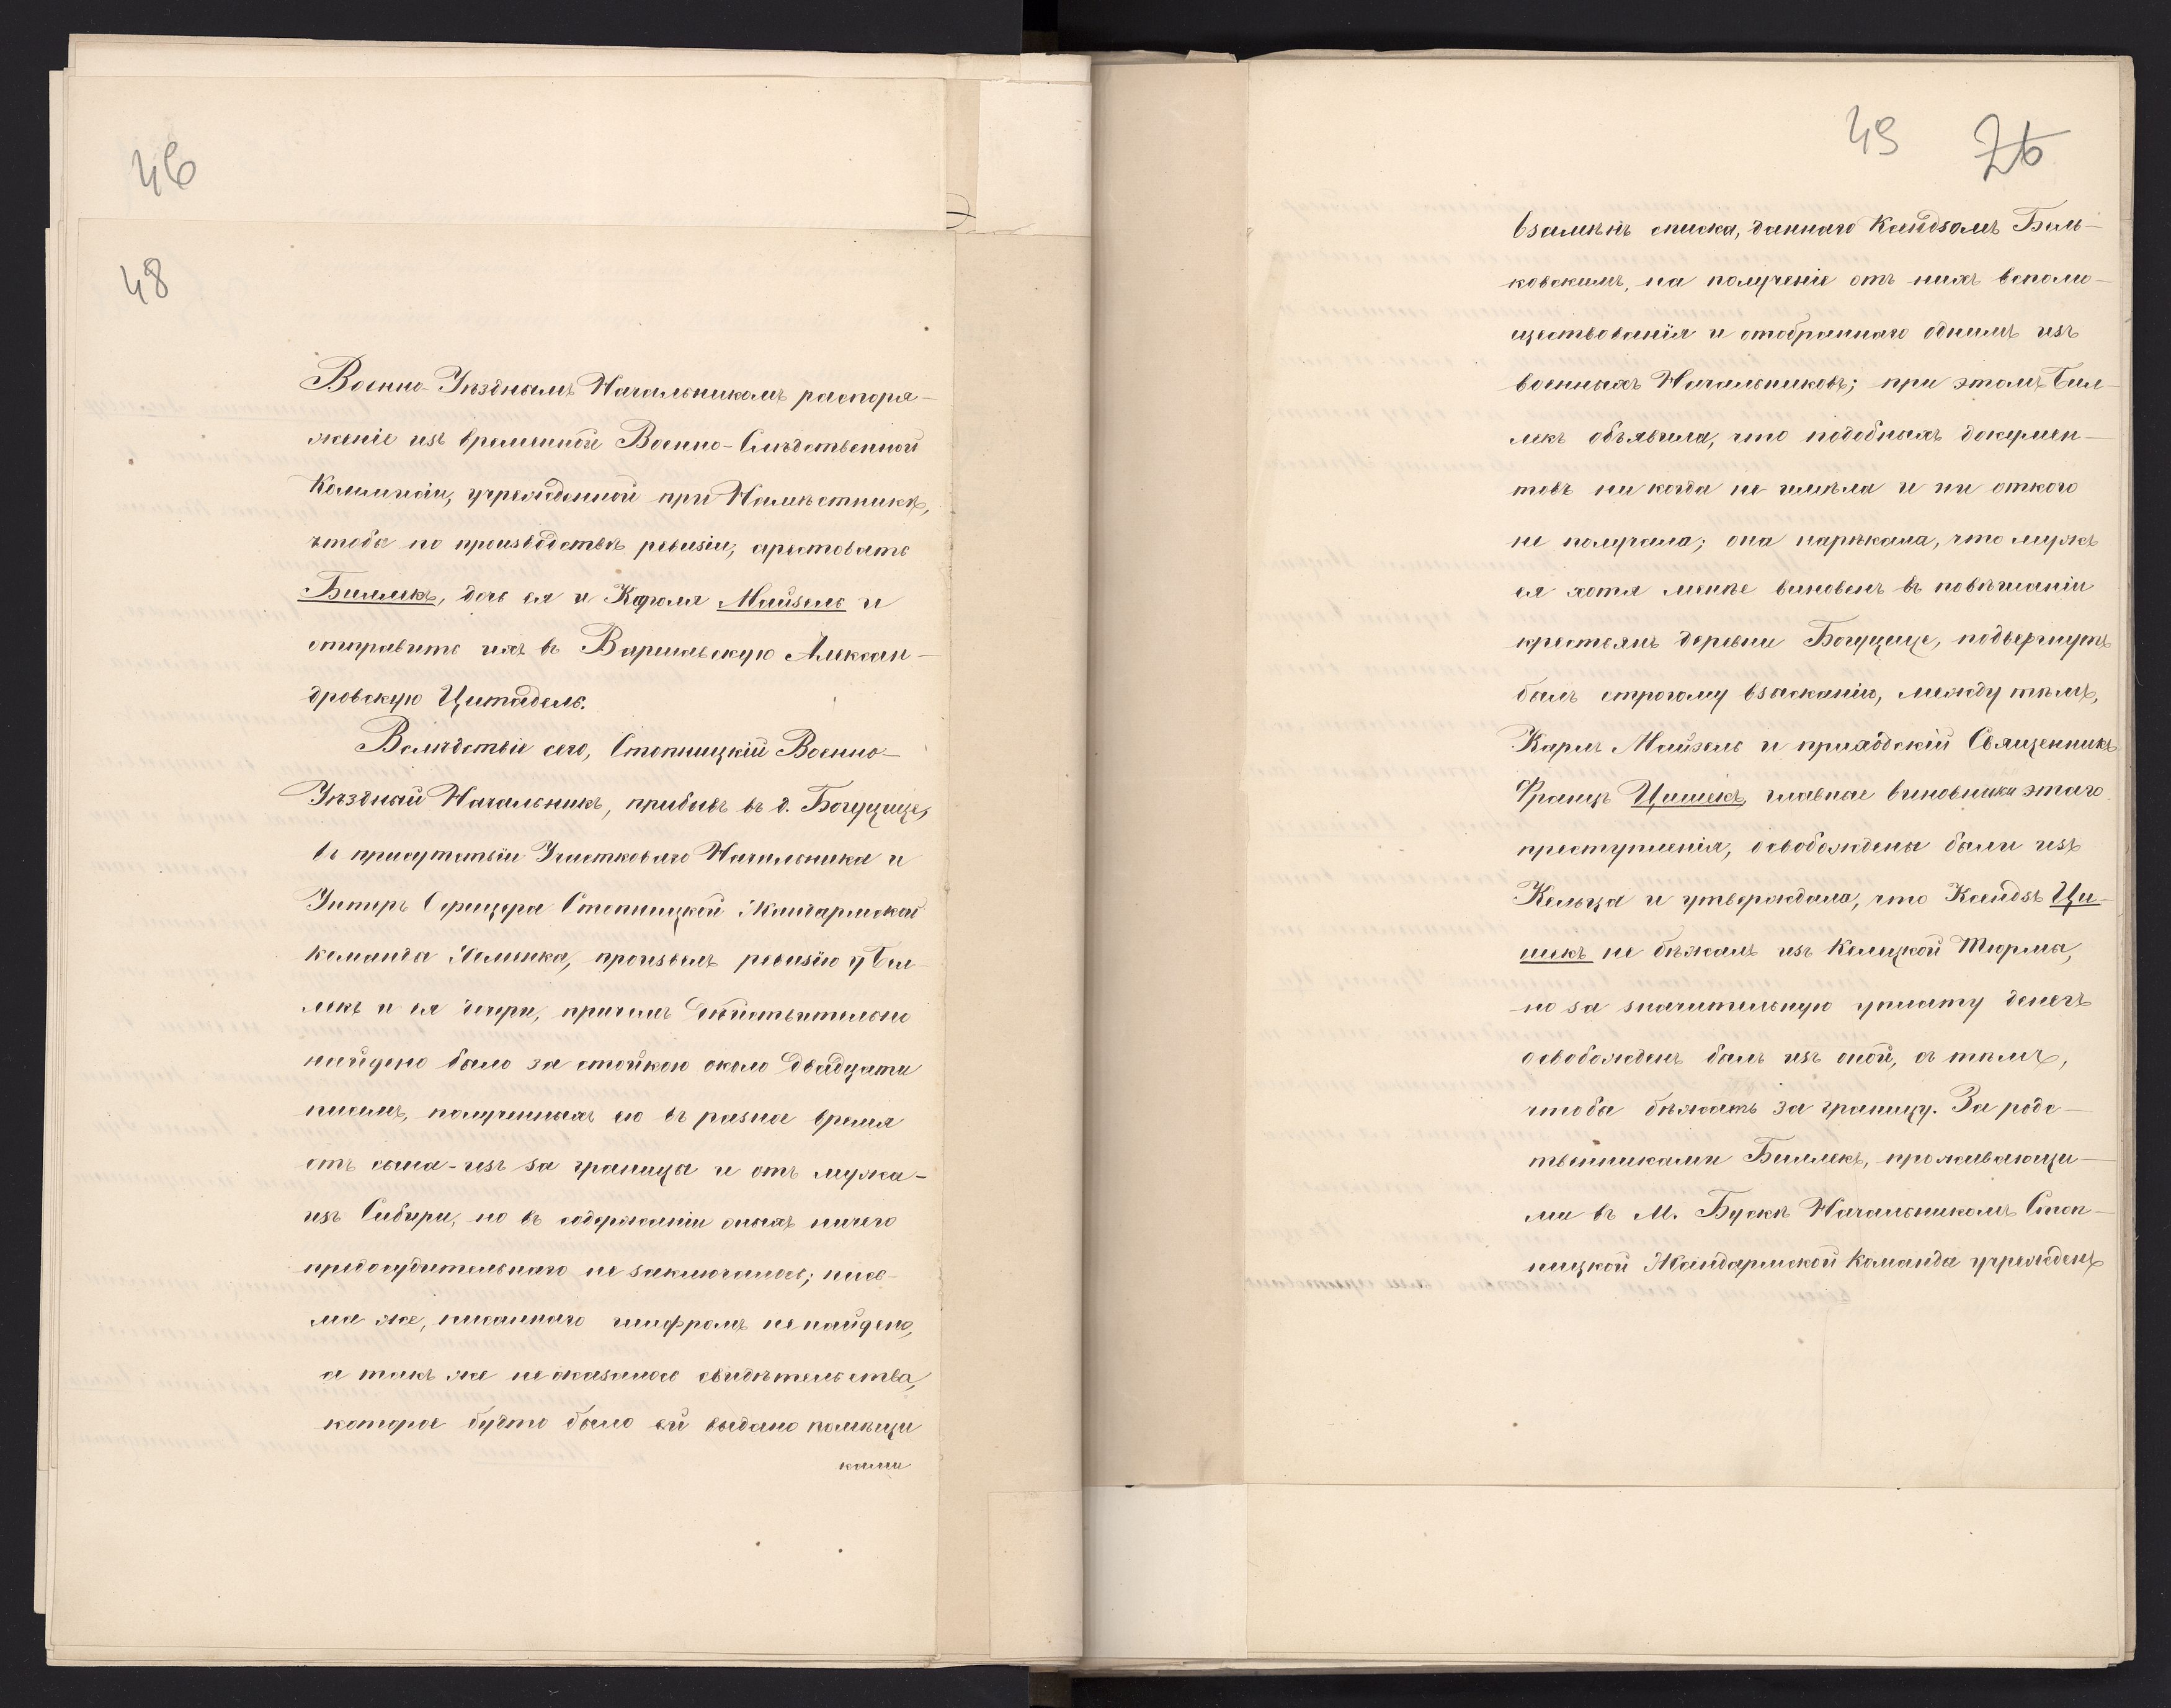 46
48
Военно-Уѣзднымъ Начальникомъ распоря-
женіе изъ временной Военно-Слѣдственной
Коммисіи, учрежденной при Намѣстникѣ,
чтобы по производствѣ ревизіи, арестовать
Биллекъ, дочь ея и Кароля Майзель и
отправить ихъ въ Варшавскую Алексан-
дровскую Цитадель.
Вслѣдствіе сего, Стопницкій Военно-
Уѣздный Начальникъ, прибывъ въ д. Богуцице,
въ присутствіи Участковаго Начальника и
Унтеръ Офицера Стопницкой Жандармской
команды, произвелъ ревизію у Бил-
лекъ и ея дочери, причемъ дѣйствительно
найдено было за стойкою около двадцати
писемъ, полученныхъ ею въ разное время
отъ сына-изъ за границы и отъ мужа-
изъ Сибири, но въ содержаніи оныхъ ничего
предосудительнаго не заключалось; пись-
ма же, писаннаго шифромъ не найдено,
а такъ же не оказалось свидѣтельства,
которое будто было ей выдано помѣщи
ками
49 26
взамѣнъ списка, даннаго Ксендзомъ Биль-
ковскимъ, на полученіе отъ нихъ вспомо-
ществованія и отобраннаго однимъ изъ
военныхъ Начальниковъ; при этомъ Бил-
лекъ объявила, что подобныхъ докумен-
товъ ни когда не имѣла и ни откого
не получала; она нарѣкала, что мужъ
ея хотя менѣе виновенъ въ повѣшаніи
крестьянъ деревни Богуцице, подвергнутъ
былъ строгому взысканію, между тѣмъ,
Карлъ Майзель и приходскій Священникъ
Францъ Цишекъ, главные виновники этаго
преступленія, освобождены были изъ
Кельца и утверждала, что Ксендзъ Ци-
шекъ не бѣжалъ изъ Келецкой Тюрмы,
но за значительную уплату денегъ
освобожденъ былъ изъ оной, съ тѣмъ,
чтобы бѣжать за границу. За родс-
твенниками Биллекъ, проживающи-
ми въ М. Бускѣ Начальникомъ Стоп-
ницкой Жандармской Команды учрежденъ